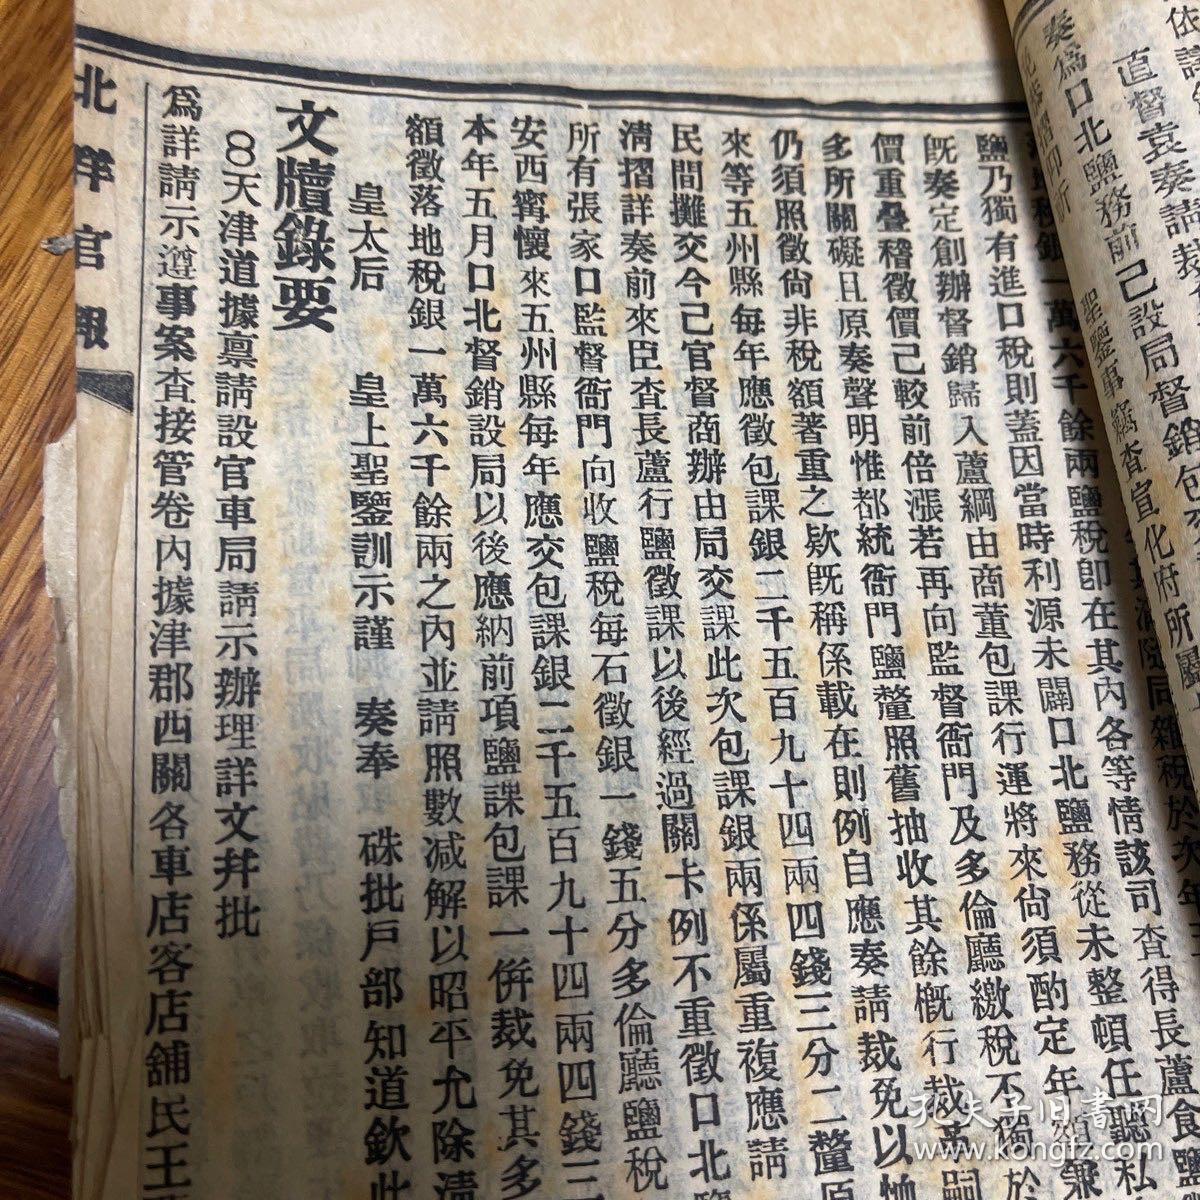 依議
直督袁奏請裁
奏爲口北鹽務前已設局督銷包
聖鑒事竊查宣化府所屬
同雜稅於次年
萬六千餘兩鹽稅卽在其內各等情該司查得長蘆食鹽
鹽乃獨有進口稅則蓋因當時利源未闢口北鹽務從未整頓任聽私
旣奏定創辦督銷歸入蘆綱由商董包課行運將來尙須酌定年額
價重疊稽徵價已較前倍漲若再向監督衙門及多倫廳繳稅不獨於
多所關礙且原奏聲明惟都統衙門鹽釐照舊抽收其餘槪行裁革
仍須照徵尙非稅額著重之欵旣稱係載在則例自應奏請裁免以恤
來等五州縣每年應徵包課銀二千五百九十四兩四錢三分二釐原
民間攤交今已官督商辦由局交課此次包課銀兩係屬重複應請
淸摺詳奏前來臣查長蘆行鹽徵課以後經過關卡例不重徵口北
所有張家口監督衙門向收鹽稅每石徵銀一錢五分多倫廳鹽稅
安西甯懷來五州縣每年應交包課銀二千五百九十四兩四錢三
本年五月口北督銷設局以後應納前項鹽課包課一倂裁免其多
額徵落地稅銀一萬六千餘兩之內並請照數減解以昭平允除淸
皇太后　皇上聖鑒訓示謹　奏奉　硃批戶部知道欽此
文牘錄要
8天津道據禀請設官車局請示辦理詳文幷批
爲詳請示遵事案查接管卷內據津郡西關各車店客店舖民王
北洋官報
孔夫子旧书网
www.kongfz.com